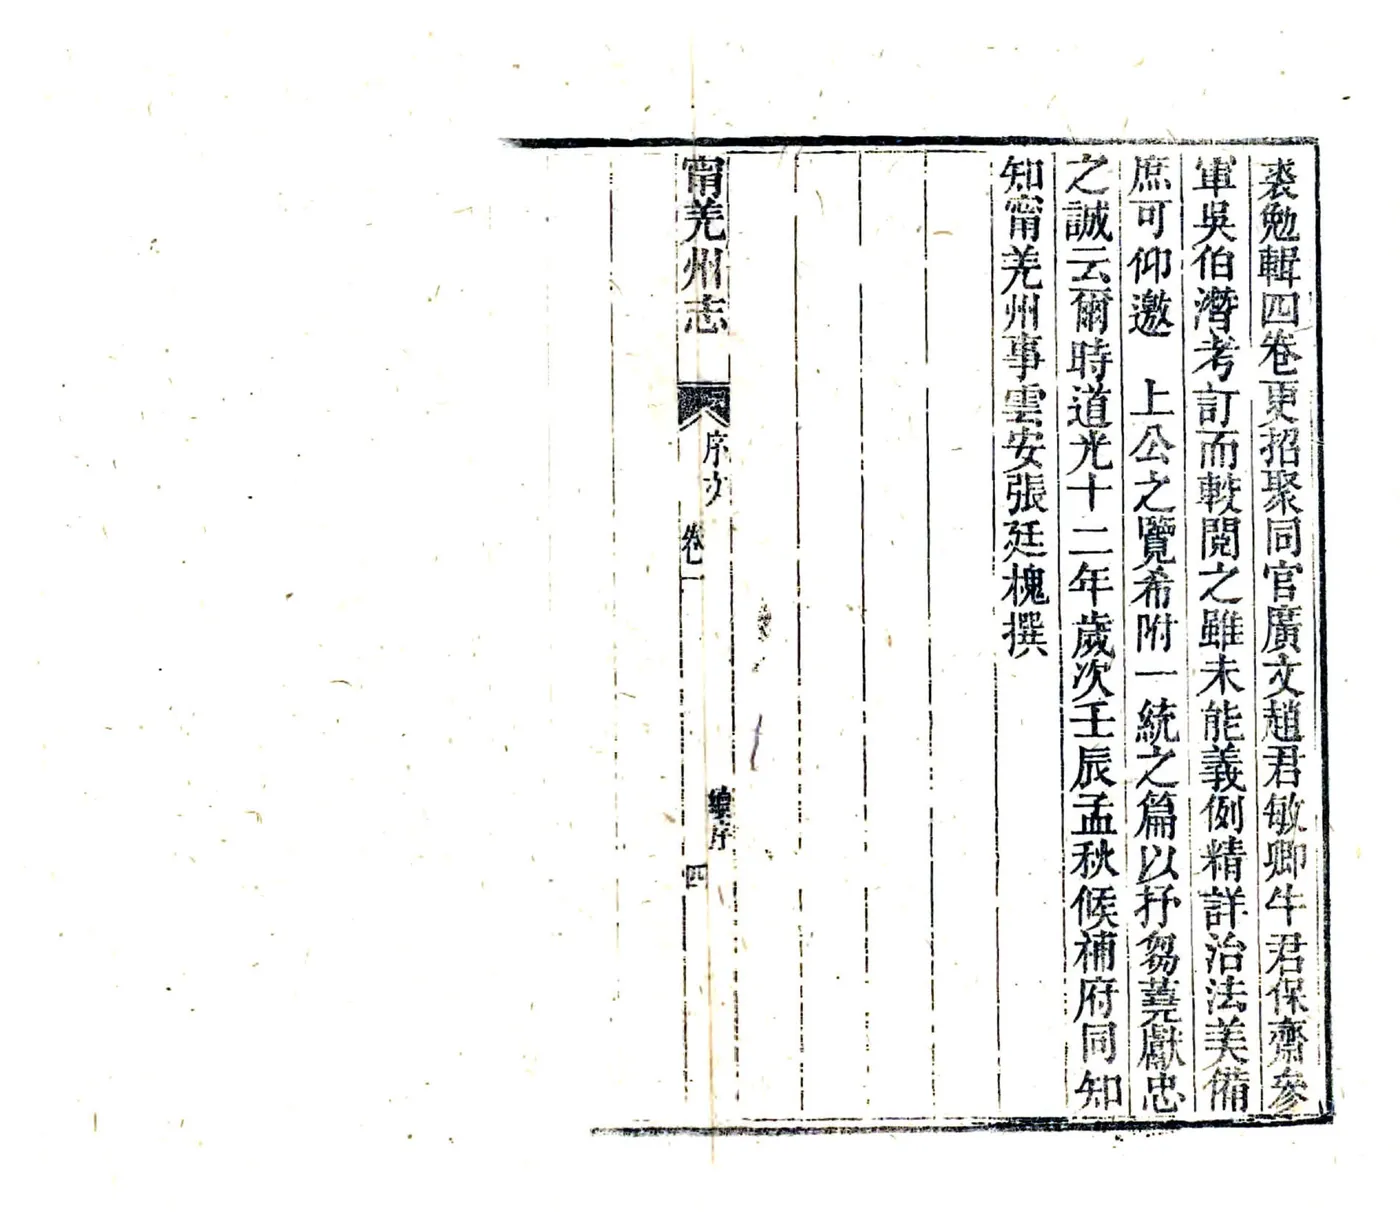 裘勉輯四卷更招聚同官廣文趙君敏卿牛君保齋參
軍吳伯濳考訂而較閱之雖未能義例精詳治法美備
庶可仰邀　上公之覽希附一統之篇以抒芻蕘獻忠
之誠云爾時道光十二年歲次壬辰孟秋候補府同知
知甯羌州事雲安張廷槐撰
甯羌州志
序文
卷一
續序
四